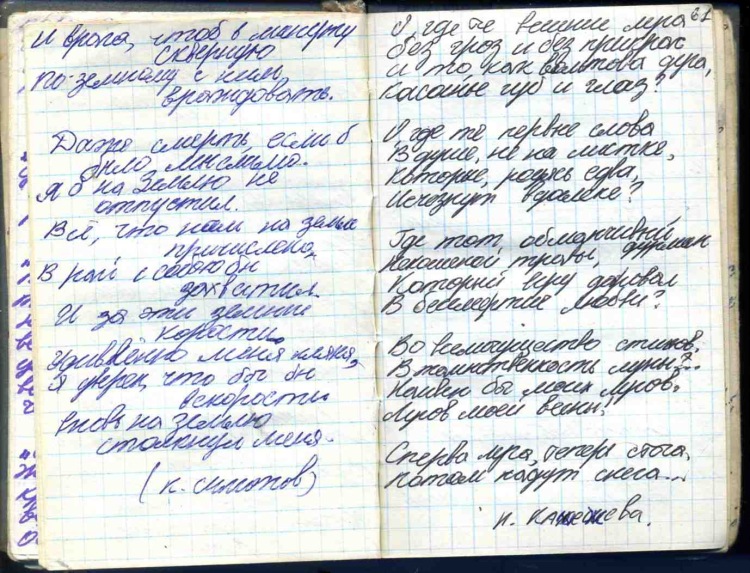 И врага, чтоб в минуту
скверную
По-земному с ним
враждовать.
Даже смерть, если б
было мыслимо.
Я б на Землю не
отпустил.
Всё, что нам на земле
причислено,
В рай с собою бы
захватил.
И за эти земные
корости
Удивлённо меня кляня,
Я уверен, что бог бы
вскорости
Вновь на Землю
столкнул меня.
(К. Симонов)
61
А где те вешние луга
без гроз и без прикрас
и то как вольтова дуга,
Касание губ и глаз?
А где те первые слова
В душе, не на листке,
Которые, родясь едва,
Исчезнут вдалеке?
Где тот, обманчивый
дурман
Некошеной травы,
Который веру даровал
В бессмертие любви?
Во всемогущество стихов,
В таинственность луны?..
Наивен бы моих лугов.
Лугов моей весны!
Сперва луга, теперь стога,
Потом падут снега...